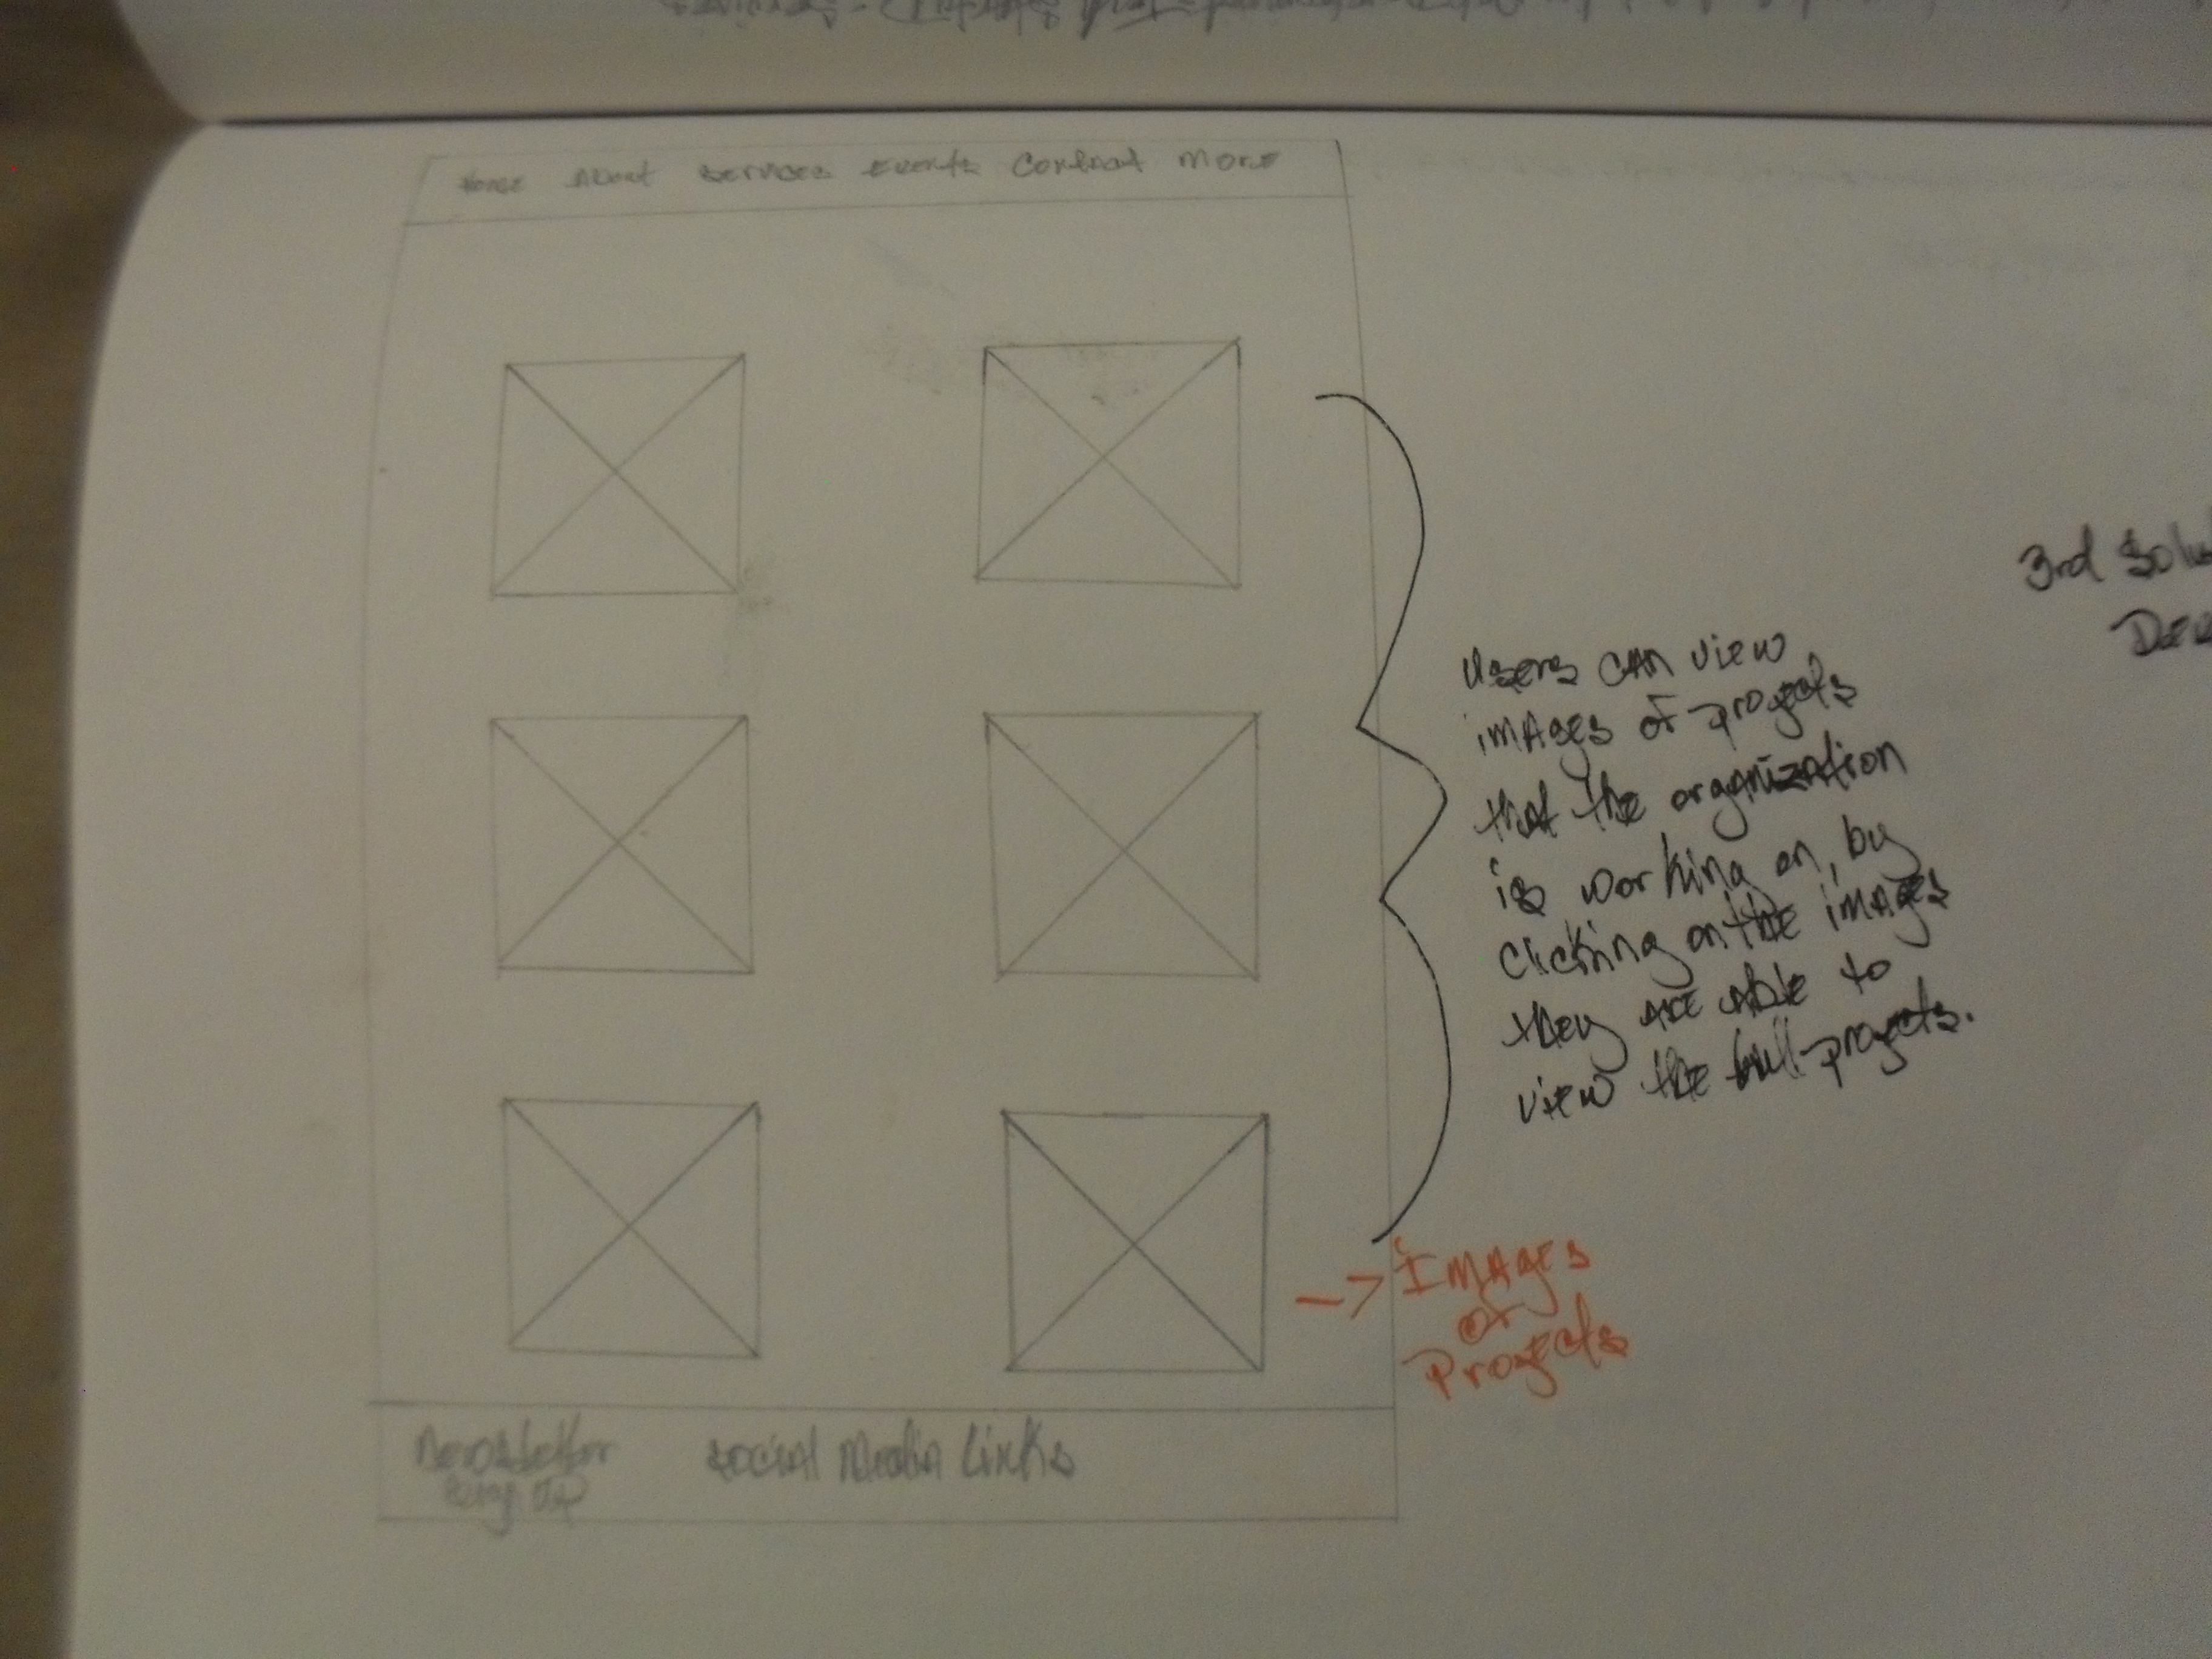 Home About Services Events Contact More
3rd
Users can view
images of proyects
that the organization
is working on, by
clicking on the images
they are able to
view the full proyects.
-> Images
of
Proyects
Newsletter Social Media Links